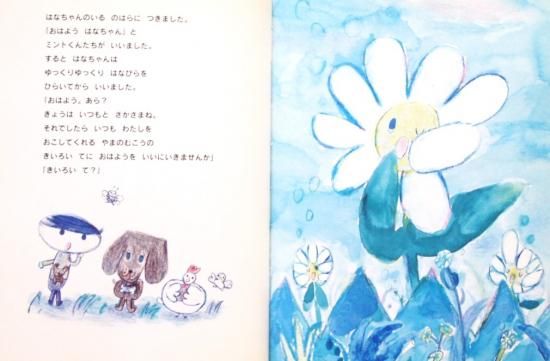 はなちゃんのいる のはらに つきました。
「おはよう はなちゃん」と
ミントくんたちが いいました。
すると はなちゃんは
ゆっくりゆっくり はなびらを
ひらいてから いいました。
「おはよう。あら?
きょうは いつもと さかさまね。
それでしたら いつも わたしを
おこしてくれる やまのむこうの
きいろい てに おはようを いいにいきませんか」
「きいろい て?」